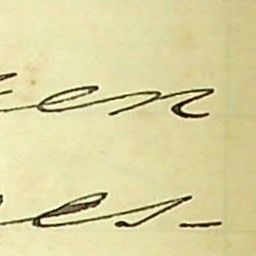 en
es-